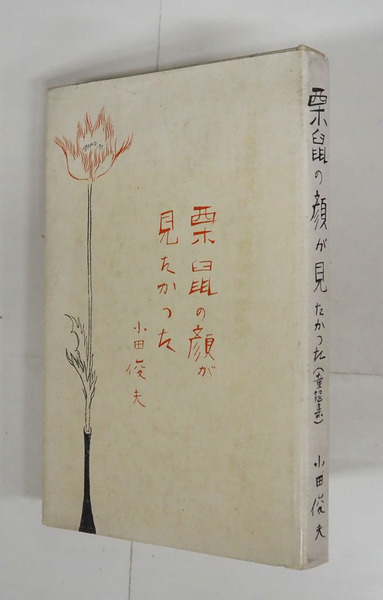 栗鼠の顔が
見たかつた
小田俊夫
栗鼠の顔が見たかつた(童謡集) 小田俊夫